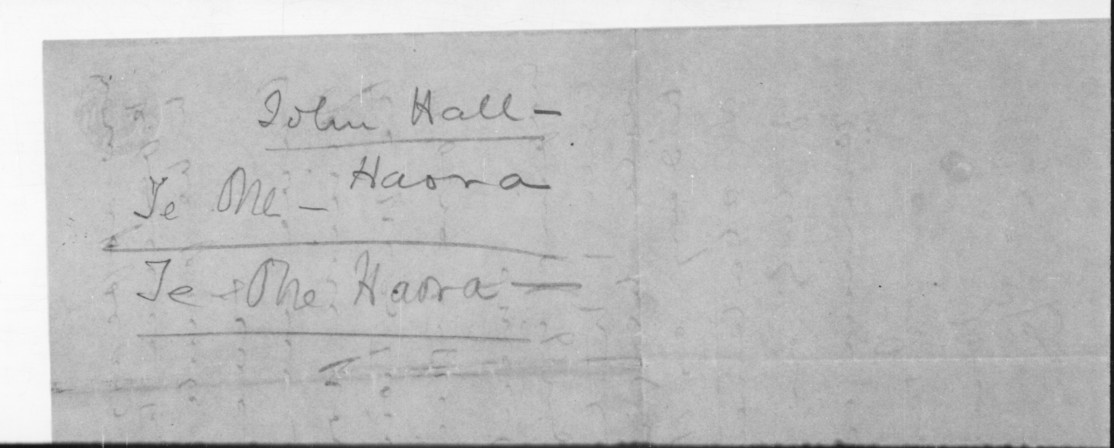 John Hall —
Te One — Haora
Te One Haora —